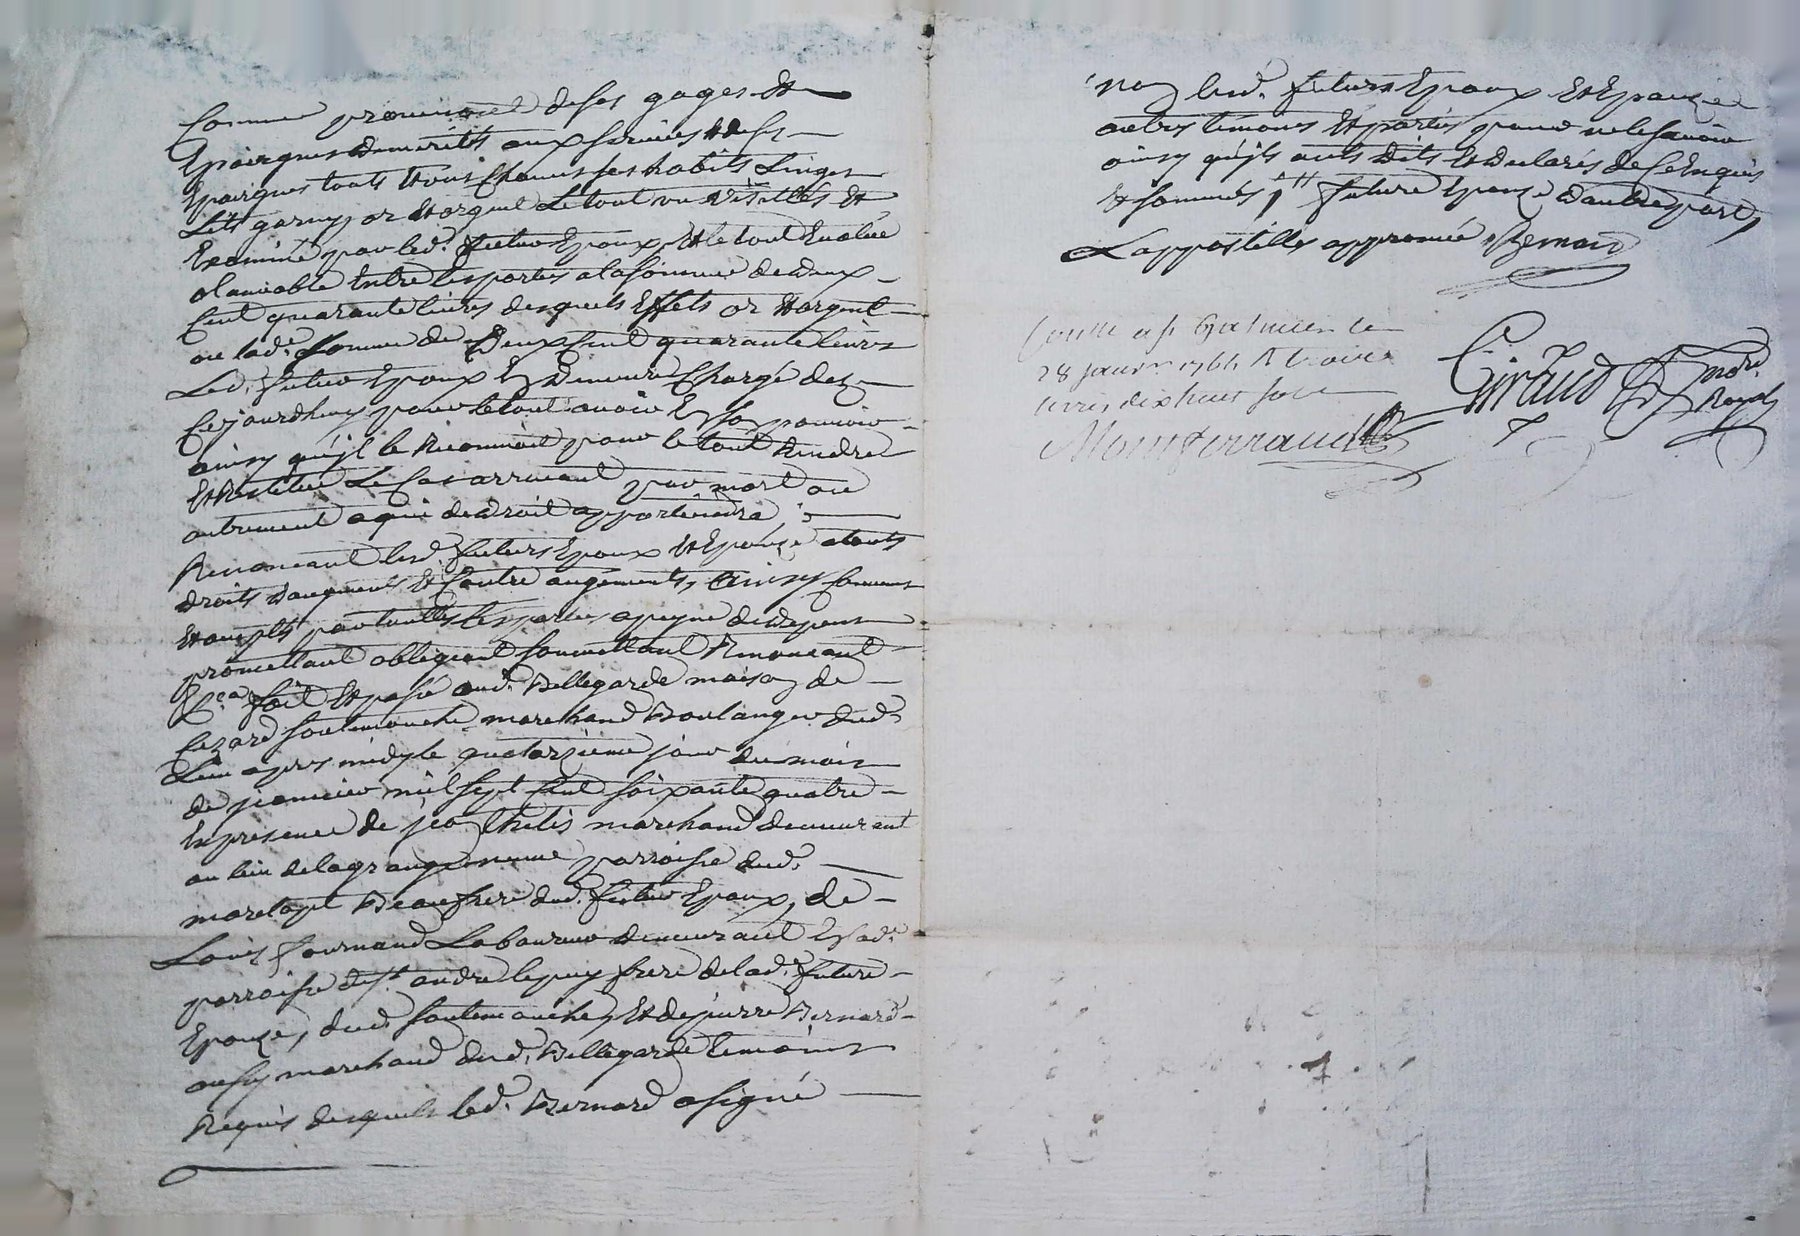 Comme provenant de ses gages et
Epairgnes demérités aux services et de ses
Epairgnes touts trois Chances ses habits Linges
Lits garny, or et argent Le tout vu Visittés et
Examiné par led. futur Epoux et le tout Evalué
alamiable Entre les parties a la somme de deux
Cent quarante livres desquels Effets or et argent
ou lad.e somme de Deux Cent quarante livres
Led. futur Epoux En Demeure Chargé dez
Cejourdhuy pour le tout avoir En son pouvoir
ainsy qu'jl le Reconnoit pour le tout Rendre
et Restituer Le Cas arrivant par mort ou
autrement a qui de droit appartiendra :
Renoncant lesd. futurs Epoux et Epouze a touts
droits d'augments et Contre augements, Ainsy Convenu
et accepté par touttes les parties a peyne de depens
promettant obligeant soumettant Renoncant
&ca fait et passé aud. Bellegarde maison de
Cezard soutemouche marchand Boulanger dud.
Lieu apres midy le quatorzieme jour du mois
de janvier mil sept Cent soixante quatre
En presence de jean Thelis marchand demeurant
au lieu de lagrangeneuve parroisse dud.
maretopt Beaufrere dud. futur Epoux, de
Louis fournand Laboureur demeurant En lad.e
parroisse de st. andré le puy frere de lad. future
Epouze, dud. soutemouche, et de pierre Bernard
aussy marchand dud. Bellegarde temoins
Requis desquels led. Bernard a signé
non lesd. futurs Epoux et Epouze
autres temoins et parties pour ne le savoir
ainsy qu'jls ont Dits et Declarés de ce Enquis
et sommés future Epouze d'autre part,
L'appostille approuvée Bernard
Contr. a st Galmier le
28 janvr 1764 R troize
livres dix huit sols
Montferrand
Giraud Nore.
Royal